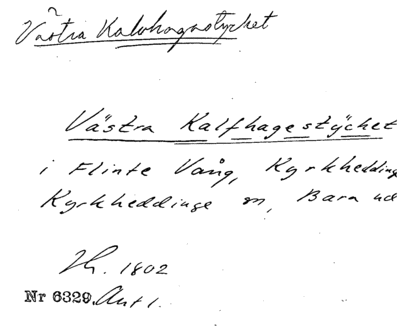 Västra Kalvhagastycket
Västra Kalfhagestÿcket
i Flinte Vång, Kyrkhedding
Kyrkheddinge m, Bara hd
1802
Nr 6329. Akt 1.